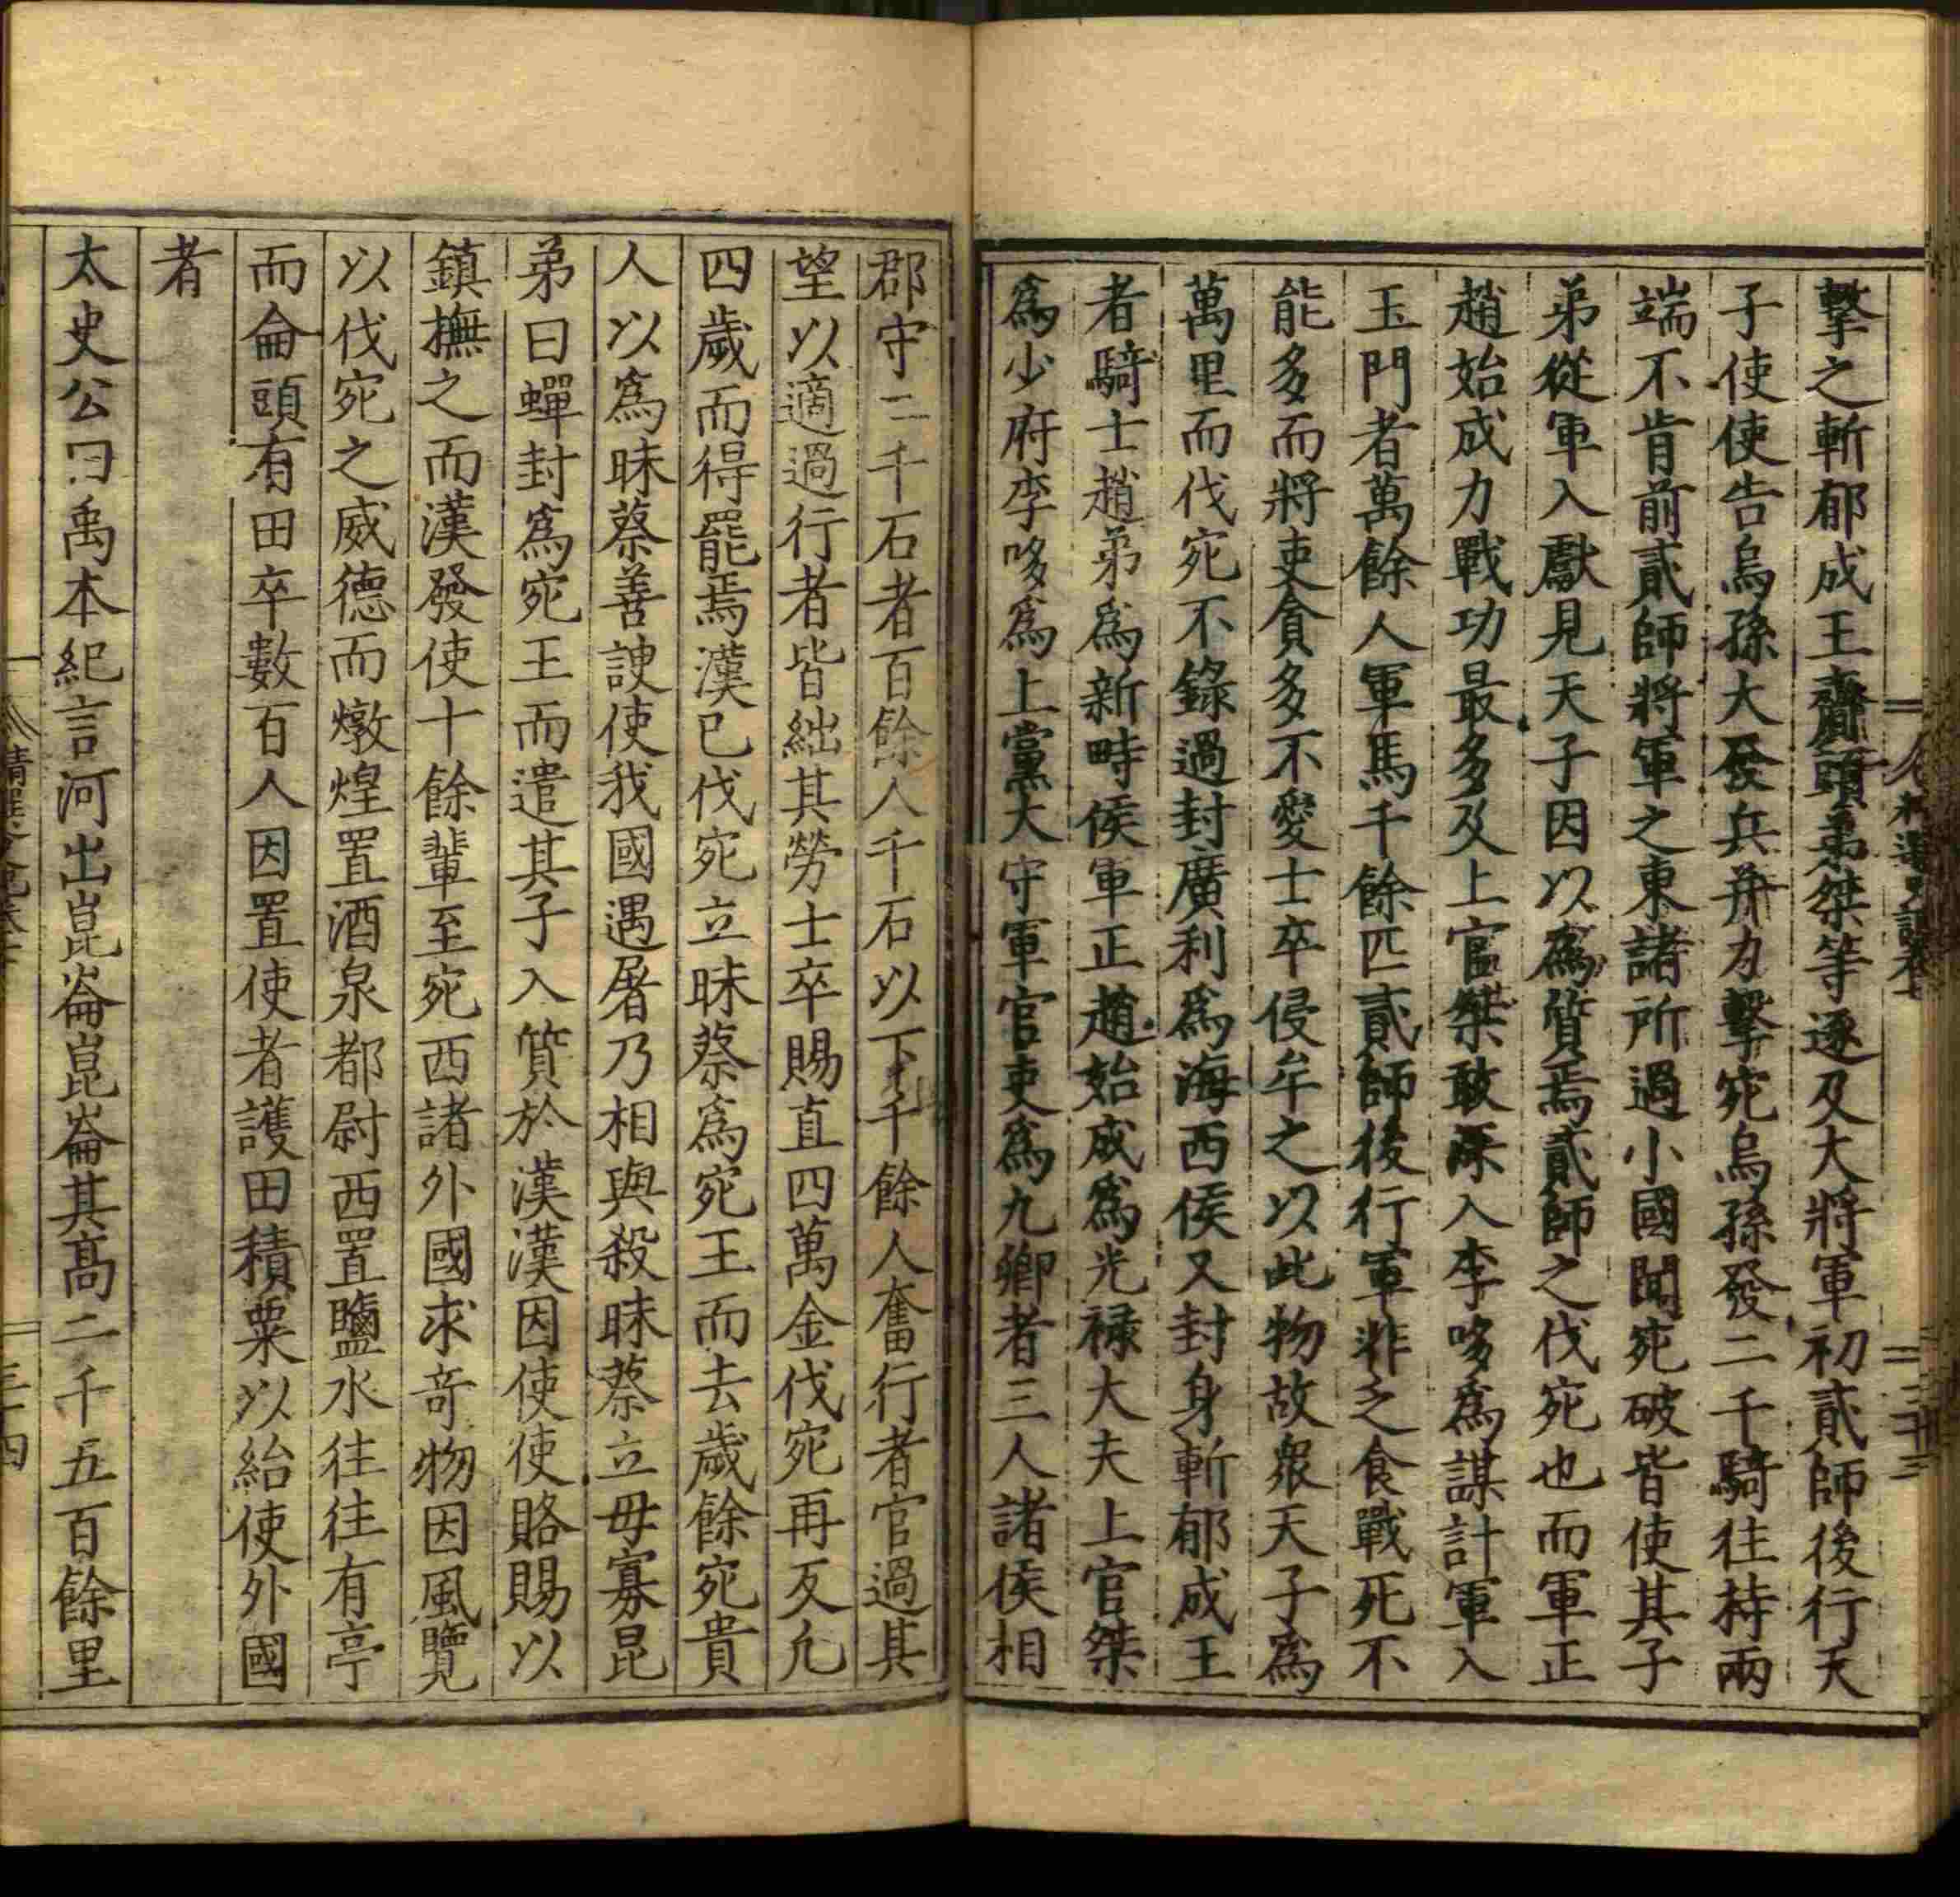 擊之斬郁成王齎頭弟桀等逐及大將軍初貳師後行天
子使使告烏孫大發兵并力擊宛烏孫發二千騎往持兩
端不肯前貳師將軍之東諸所過小國聞宛破皆使其子
弟從軍入獻見天子因以爲質焉貳師之伐宛也而軍正
趙始成力戰功最多及上官桀敢深入李哆爲謀計軍入
玉門者萬餘人軍馬千餘匹貳師後行軍非乏食戰死不
能多而將吏貪多不愛士卒侵牟之以此物故衆天子爲
萬里而伐宛不錄過封廣利爲海西侯又封身斬郁成王
者騎士趙弟爲新畤侯軍正趙始成爲光祿大夫上官桀
爲少府李哆爲上黨大守軍官吏爲九卿者三人諸侯相
郡守二千石者百餘人千石以下千餘人奮行者官過其
望以適過行者皆絀其勞士卒賜直四萬金伐宛再反凢
四歲而得罷焉漢已伐宛立昧蔡爲宛王而去歲餘宛貴
人以爲昧蔡善諛使我國遇屠乃相與殺昧蔡立毋寡昆
弟曰蟬封爲宛王而遣其子入質於漢漢因使使賂賜以
鎮撫之而漢發使十餘輩至宛西諸外國求奇物因風覽
以伐宛之威德而燉煌置酒泉都尉西置鹽水往往有亭
而侖頭有田卒數百人因置使者護田積粟以給使外國
者
太史公曰禹本紀言河出崑崙崑崙其高二千五百餘里
三十四